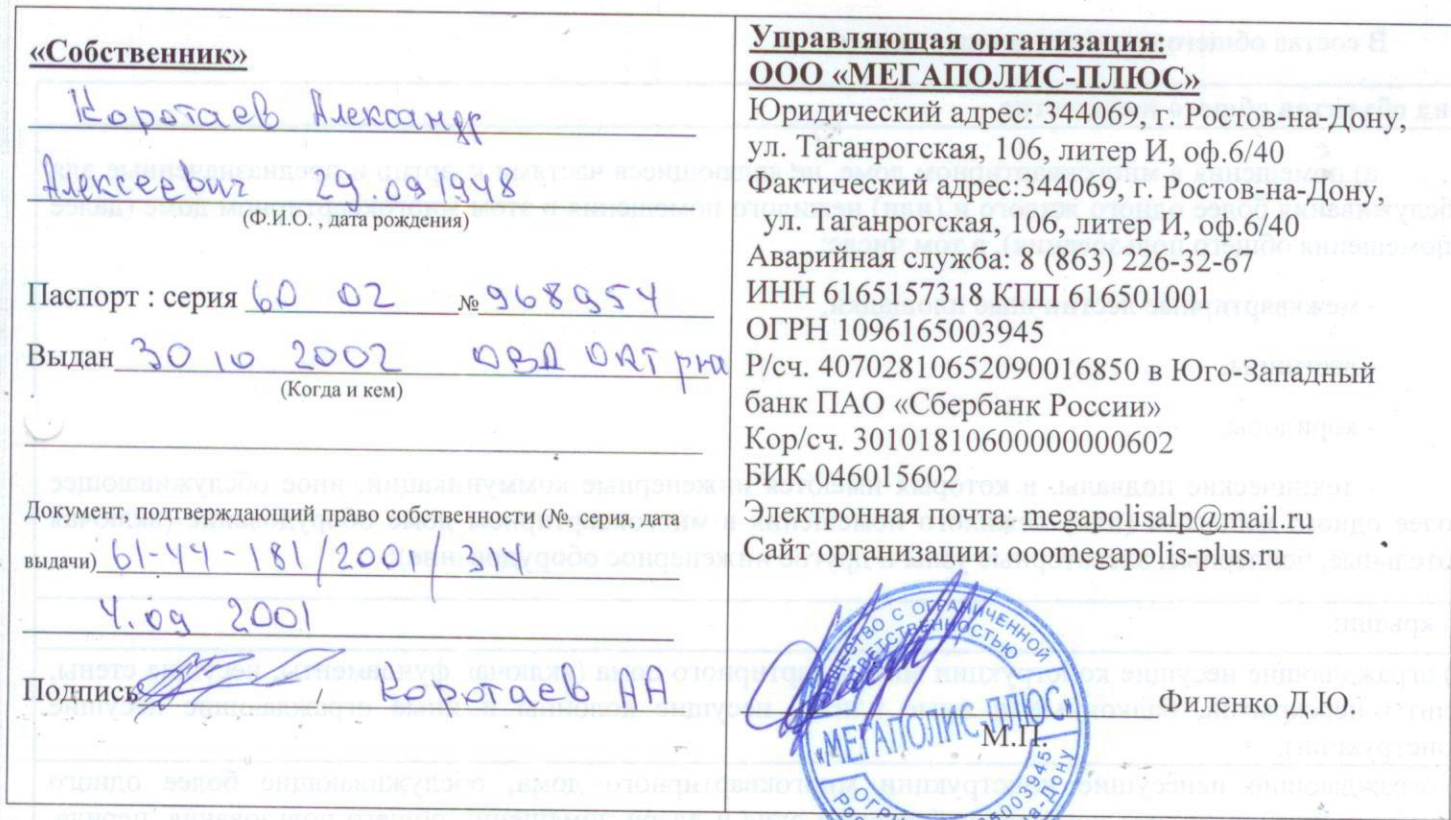 «Собственник»
Коротаев Александр
Алексеевич 29 09 1948
(Ф.И.О. , дата рождения)
Паспорт : серия 60 02 № 968954
Выдан 30 10 2002 ОВД ОКТ рна
(Когда и кем)
Документ, подтверждающий право собственности (№, серия, дата
выдачи) 61-44-181/2001/314
4.09 2001
Подпись / Коротаев АА
Управляющая организация:
ООО «МЕГАПОЛИС-ПЛЮС»
Юридический адрес: 344069, г. Ростов-на-Дону,
ул. Таганрогская, 106, литер И, оф.6/40
Фактический адрес:344069, г. Ростов-на-Дону,
ул. Таганрогская, 106, литер И, оф.6/40
Аварийная служба: 8 (863) 226-32-67
ИНН 6165157318 КПП 616501001
ОГРН 1096165003945
Р/сч. 40702810652090016850 в Юго-Западный
банк ПАО «Сбербанк России»
Кор/сч. 30101810600000000602
БИК 046015602
Электронная почта: megapolisalp@mail.ru
Сайт организации: ooomegapolis-plus.ru
С ОГРАНИЧЕННОЙ
ОТВЕТСТВЕННОСТЬЮ
«МЕГАПОЛИС-ПЛЮС»
Филенко Д.Ю.
М.П.